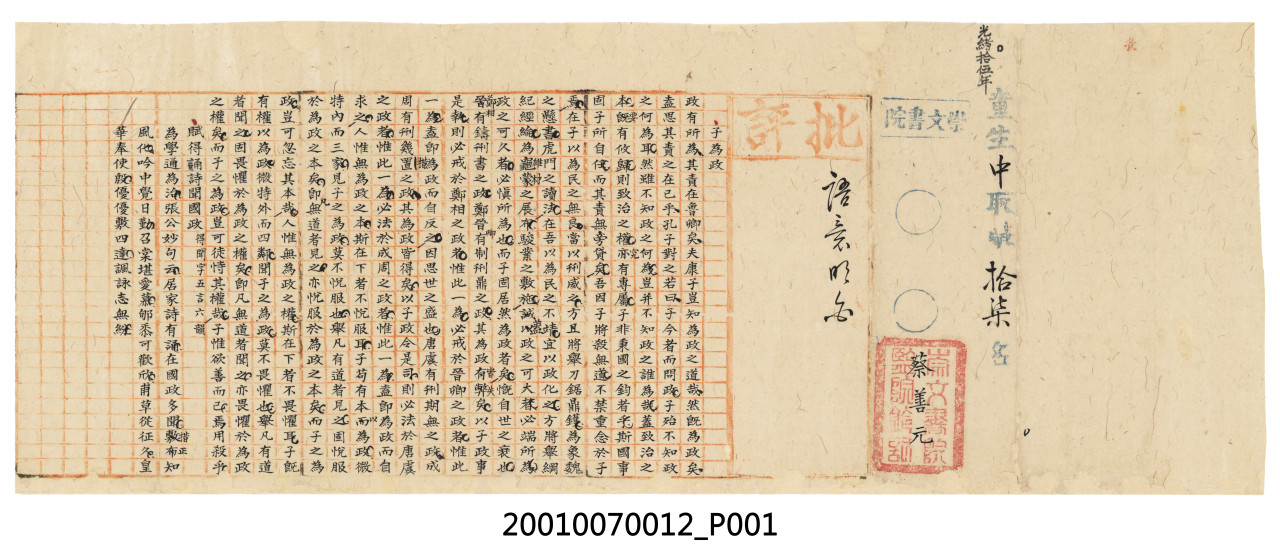 光緒拾伍年
童生中取第拾柒名
蔡善元
學文書院
批評
語意明白
子為政
政有所為其責在魯卿矣夫康子豈知為政之道哉然既為政矣
盍思其責之在己乎孔子對之若曰子今者而問政子殆不知政
之何為耳然雖不知政之何為豈并不知政之誰為哉蓋致治之
本既有攸歸則致治之權亦有專屬子非秉國之鈞者乎斯國事
固子所自任而其責無旁貸矣吾因子將殺無道不禁重念於子
焉在子以為民之無良當以刑威之方且將舉刀鋸鼎鑊為象魏
之懸書虎門之讀法在吾以為民之不靖宜以政化之方將舉綱
紀經綸為之展布駿業之敷施誠以政之可大者必端所為
政之可久者必慎所為也而子固居然為政者矣慨自世之衰也
晉有鑄刑書之政鄭晉有制刑鼎之政其為政有弊矣以子政事
是執則必戒於鄭相之政者惟此一為必戒於晉卿之政者惟此
一為盍即為政而自反之因思世之盛也唐虞有刑期無之政成
周有刑幾置之政其為政皆得矣以子政令是司則必法於唐虞
之政者惟此一為必法於成周之政者惟此一為盍即為政而自
求之人惟無為政之本斯在下者不悅服耳子苟有本而為政微
特內而三家見子之為政莫不悅服也舉凡有道者見之固悅服
於為政之本矣即無道者見之亦悅服於為政之本矣而子之為
政豈可忽忘其本哉人惟無為政之權斯在下者不畏懼耳子既
有權以為政微特外而四鄰聞子之為政莫不畏懼也舉凡有道
者聞之固畏懼於為政之權矣即凡無道者聞之亦畏懼於為政
之權矣而子之為政豈可徒恃其權哉子惟欲善而己焉用殺乎
賦得誦詩聞國政 得聞字五言六韻
為學通為治張公妙句云居家詩有誦在國政多聞敷布知
風化吟中覺日勤召棠堪愛慕郇黍可歡欣甫草從征久皇
華奉使殷優優敷四達諷詠志無紛
措正
20010070012_P001